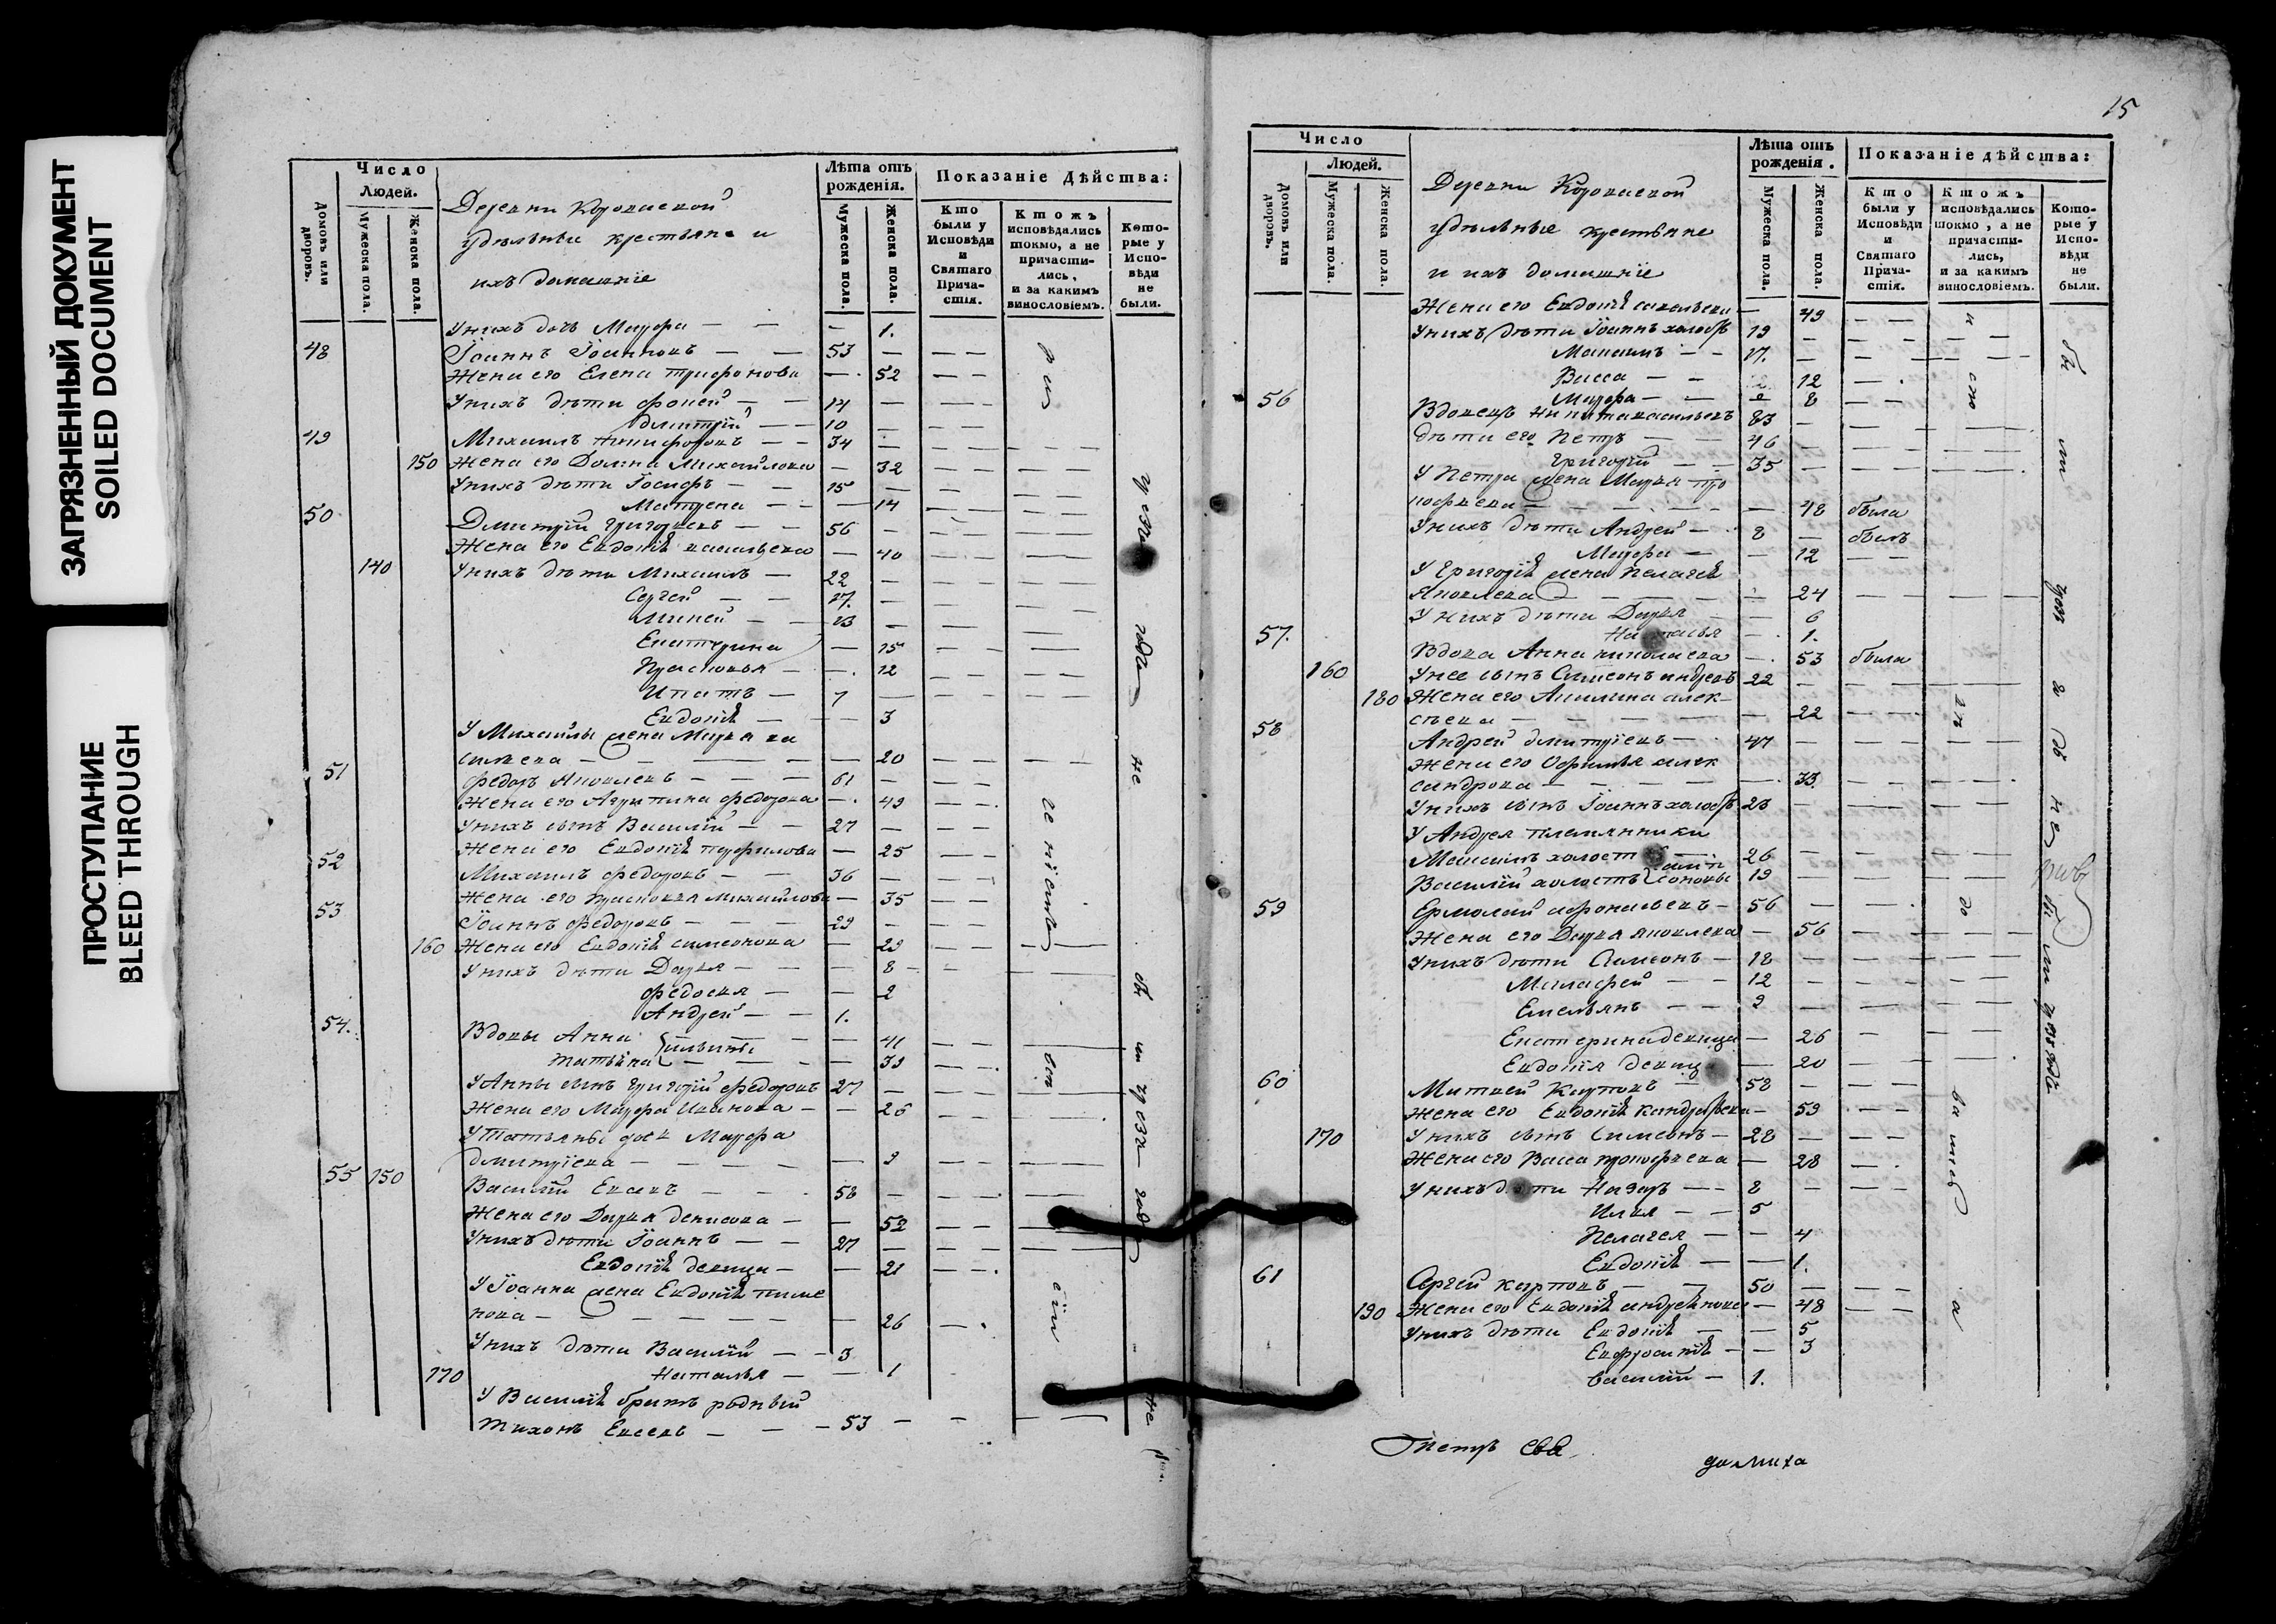 ЗАГРЯЗНЕННЫЙ ДОКУМЕНТ
SOILED DOCUMENT
ПРОСТУПАНИЕ
BLEED THROUGH
Число
Людей.
Домовъ или дворовъ.
Мужеска пола.
Женска пола.
Лѣта отъ рожденія.
Мужеска пола.
Женска пола.
Показаніе Дѣйства:
Кто были у Исповѣди и Святаго Прича-стія.
Ктожъ исповѣдались токмо, а не причасти-лись, и за какимъ винословіемъ.
Кото-рые у Испо-вѣди не были.
удѣльные крестьяне и
ихъ домашніе
У нихъ дочь Мавра — — — 1.
48 Іоаннъ Іоанновъ — — 53 —
Жена его Елена Трифонова — 52
У нихъ дѣти Фокей — 14 —
Дмитрій — 10 —
49 Михаилъ Никифоровъ — 34 —
150 Жена его Домна Михайлова — 32
У нихъ дѣти Іосифъ — 15 —
Матрена — — 14
50 Дмитрій Григорьевъ — 56 —
Жена его Евдокія Васильева — 40
140 У нихъ дѣти Михаилъ — 22 —
Сергей — 17. —
Миней — 13 —
Екатерина — 15
Прасковья — 12
Ипатъ — 7 —
Евдокія — 3
У Михаилы жена Марѳа Ва
сильева — 20
51 Федоръ Яковлевъ — 61 —
Жена его Агрипина Федорова — 49
У нихъ сынъ Василій — 27 —
Жена его Евдокія — 25
52 Михаилъ Федоровъ — 36 —
Жена его Прасковья Михайлова — 35
53 Іоаннъ Федоровъ — 29 —
160 Жена его Евдокія Симеонова — 29
У нихъ дѣти Дарья — 8
Федосья — 2
Андрей — 1.
54. Вдовы Анна — 41
Татьяна — 39
У Анны сынъ Григорій Федоровъ 27 —
Жена его Мавра Иванова — 26
У Татьяны дочь Мавра
Дмитріева — 9
55 150 Василій Евсевъ — 58 —
Жена его Дарья Денисова — 52
У нихъ дѣти Іоаннъ — 27 —
Евдокія девица — 21
У Іоанна жена Евдокія Пиме
нова — 26
У нихъ дѣти Василій — 3
170 Наталья — 1
У Василія братъ родный
Тихонъ Евсевъ — 53 —
15
Число
Людей.
Домовъ или дворовъ.
Мужеска пола.
Женска пола.
Лѣта отъ рожденія.
Мужеска пола.
Женска пола.
Показаніе дѣйства:
Кто были у Исповѣди и Святаго Прича-стія.
Ктожъ исповѣдались токмо, а не причасти-лись, и за какимъ винословіемъ.
Кото-рые у Испо-вѣди не были.
удѣльные крестьяне
и ихъ домашніе
Жена его Евдокія Савельева — 49
У нихъ дѣти Іоаннъ холостъ 19 —
Максимъ — 17. —
Васса — 12
Мавра — 8
56 Вдовецъ Никита Васильевъ 83 —
Дѣти его Петръ — 46 —
Григорій — 35 —
У Петра жена Марья Про
кофьева — 48 была
У нихъ дѣти Андрей — 8 — былъ
Мавра — 12
У Григорія жена Пелагея
Яковлева — 24
У нихъ дѣти Дарья — 6
57. Наталья — 1.
Вдова Анна Николаева — 53 была
160 У нее сынъ Симеонъ Андреевъ 22 —
180 Жена его Акилина Алек-
сѣева — 22
58 Андрей Дмитріевъ — 47 —
Жена его Офимья Алек
сандрова — 33
У нихъ сынъ Іоаннъ холостъ 23 —
У Андрея племянники
Максимъ холостъ 26 —
Василій холостъ 19 —
59 Ермолай Афонасьевъ — 56 —
Жена его Дарья Яковлева — 56
У нихъ дѣти Симеонъ — 18 —
Малафей — 12 —
Емельянъ — 9 —
Екатерина девица — 26
Евдокія девица — 20
60 Матвей Карповъ — 58 —
Жена его Евдокія Кандратьева — 59
170 У нихъ сынъ Симеонъ — 28 —
Жена его Васса Прокофьева — 28
У нихъ дѣти Назаръ — 8 —
Илья — 5
Пелагея — 4
Евдокія — 1.
61 Сергей Карповъ — 50 —
190 Жена его Евдокія Андреянова — 48
У нихъ дѣти Евдокія — 5
Евфросинія — 3
Василій — 1.
Петръ